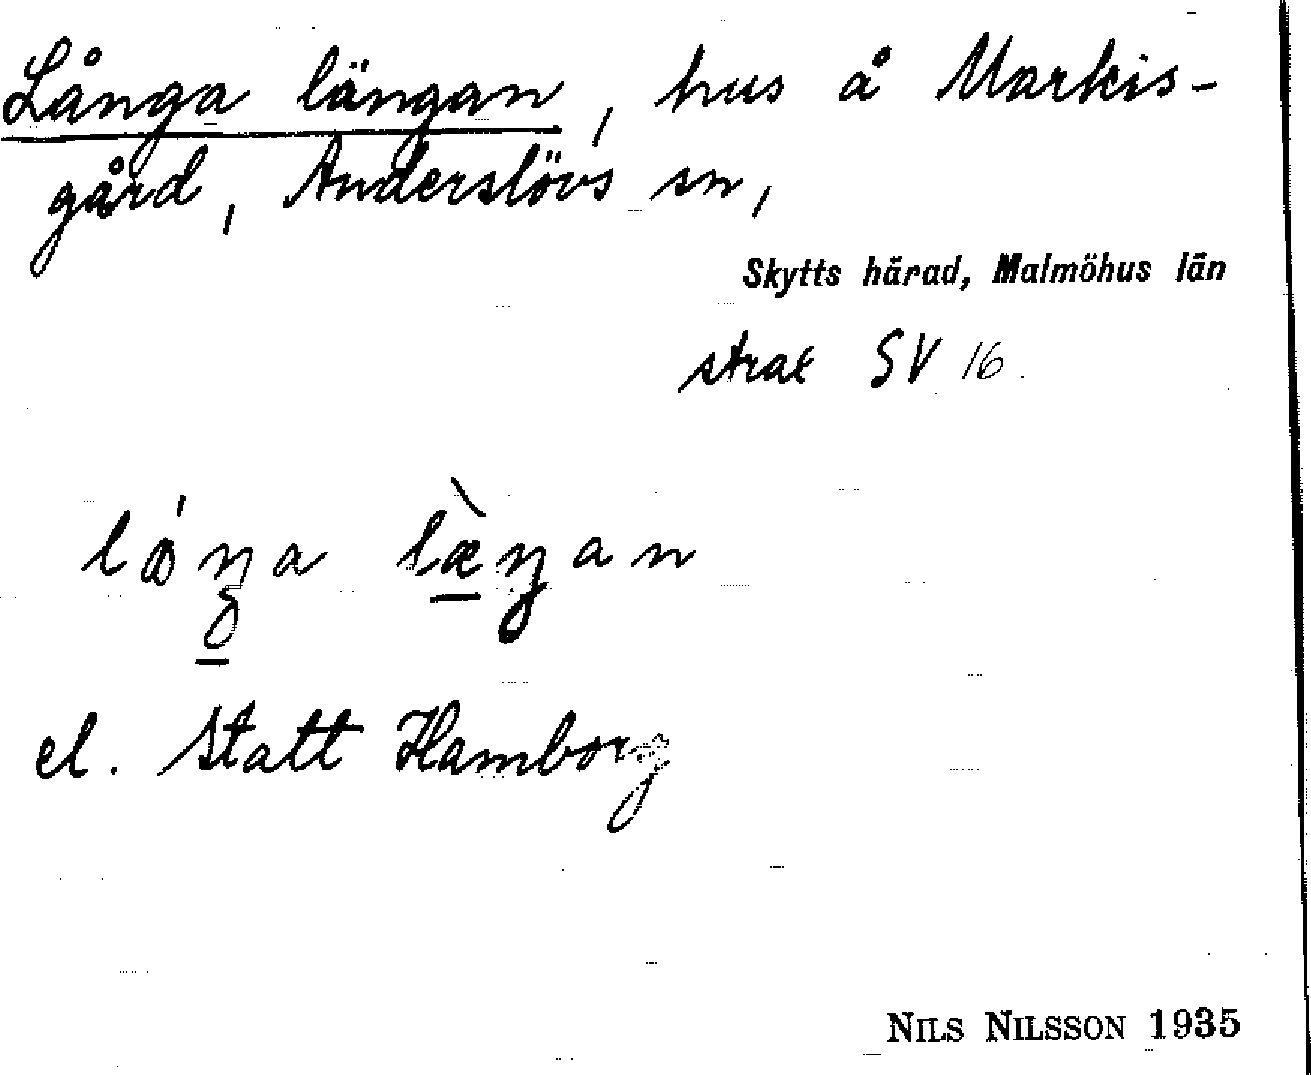 Långa längan, hus å Markis-
gård, Anderslövs sn,
Skytts härad, Malmöhus län
SV 16
el. Statt Hamborg
NILS NILSSON 1935